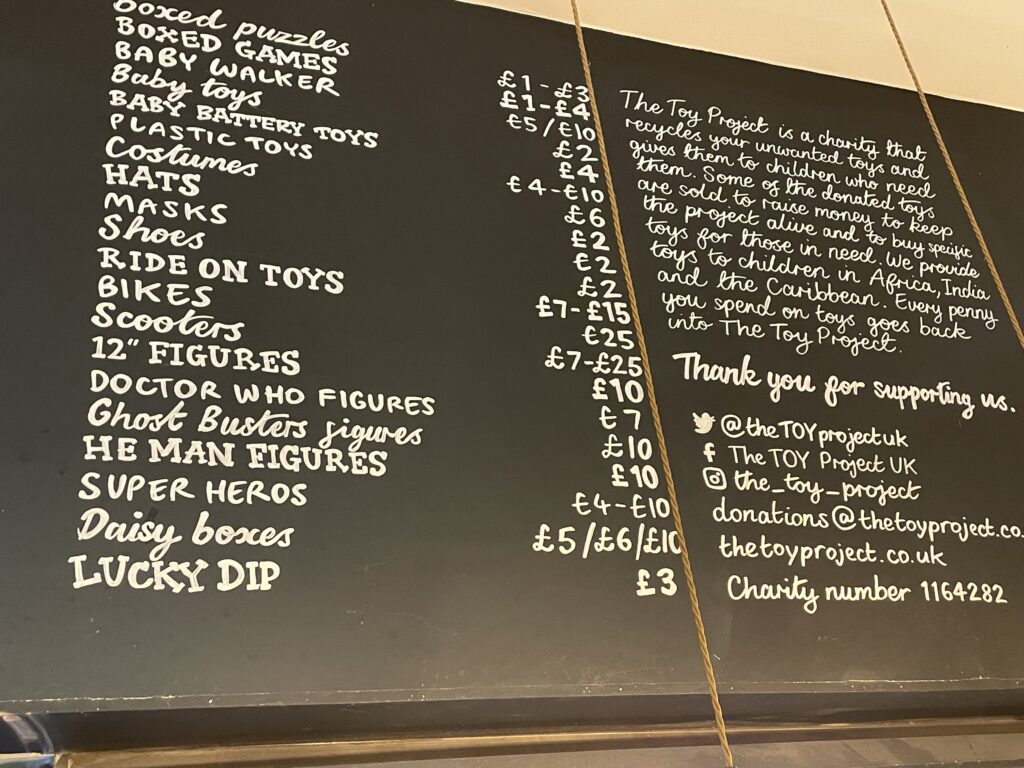 Boxed puzzles £1-£3
BOXED GAMES £1-£4
BABY WALKER £5/£10
Baby toys £2
BABY BATTERY TOYS £4
PLASTIC TOYS £4-£10
Costumes £6
HATS £2
MASKS £2
Shoes £2
RIDE ON TOYS £7-£15
BIKES £25
Scooters £7-£25
12" FIGURES £10
DOCTOR WHO FIGURES £7
Ghost Busters figures £10
HE MAN FIGURES £10
SUPER HEROS £4-£10
Daisy boxes £5/£6/£10
LUCKY DIP £3
The Toy Project is a charity that
recycles your unwanted toys and
gives them to children who need
them. Some of the donated toys
are sold to raise money to keep
the project alive and to buy specific
toys for those in need. We provide
toys to children in Africa, India
and the Caribbean. Every penny
you spend on toys goes back
into The Toy Project.
Thank you for supporting us.
@theTOYprojectuk
The TOY Project UK
the_toy_project
donations@thetoyproject.co.
thetoyproject.co.uk
Charity number 1164282